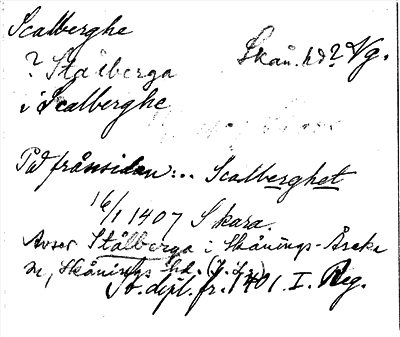 Scalberghe
? Stålberga Skån. hd? Vg.
i Scalberghe
På frånsidan: .. Scalberghet
16/1 1407 Skara.
Avser Stålberga i Skånings-Åsaka
sn, Skånings hd.
Sv. dipl. fr. 1401. I. Reg.